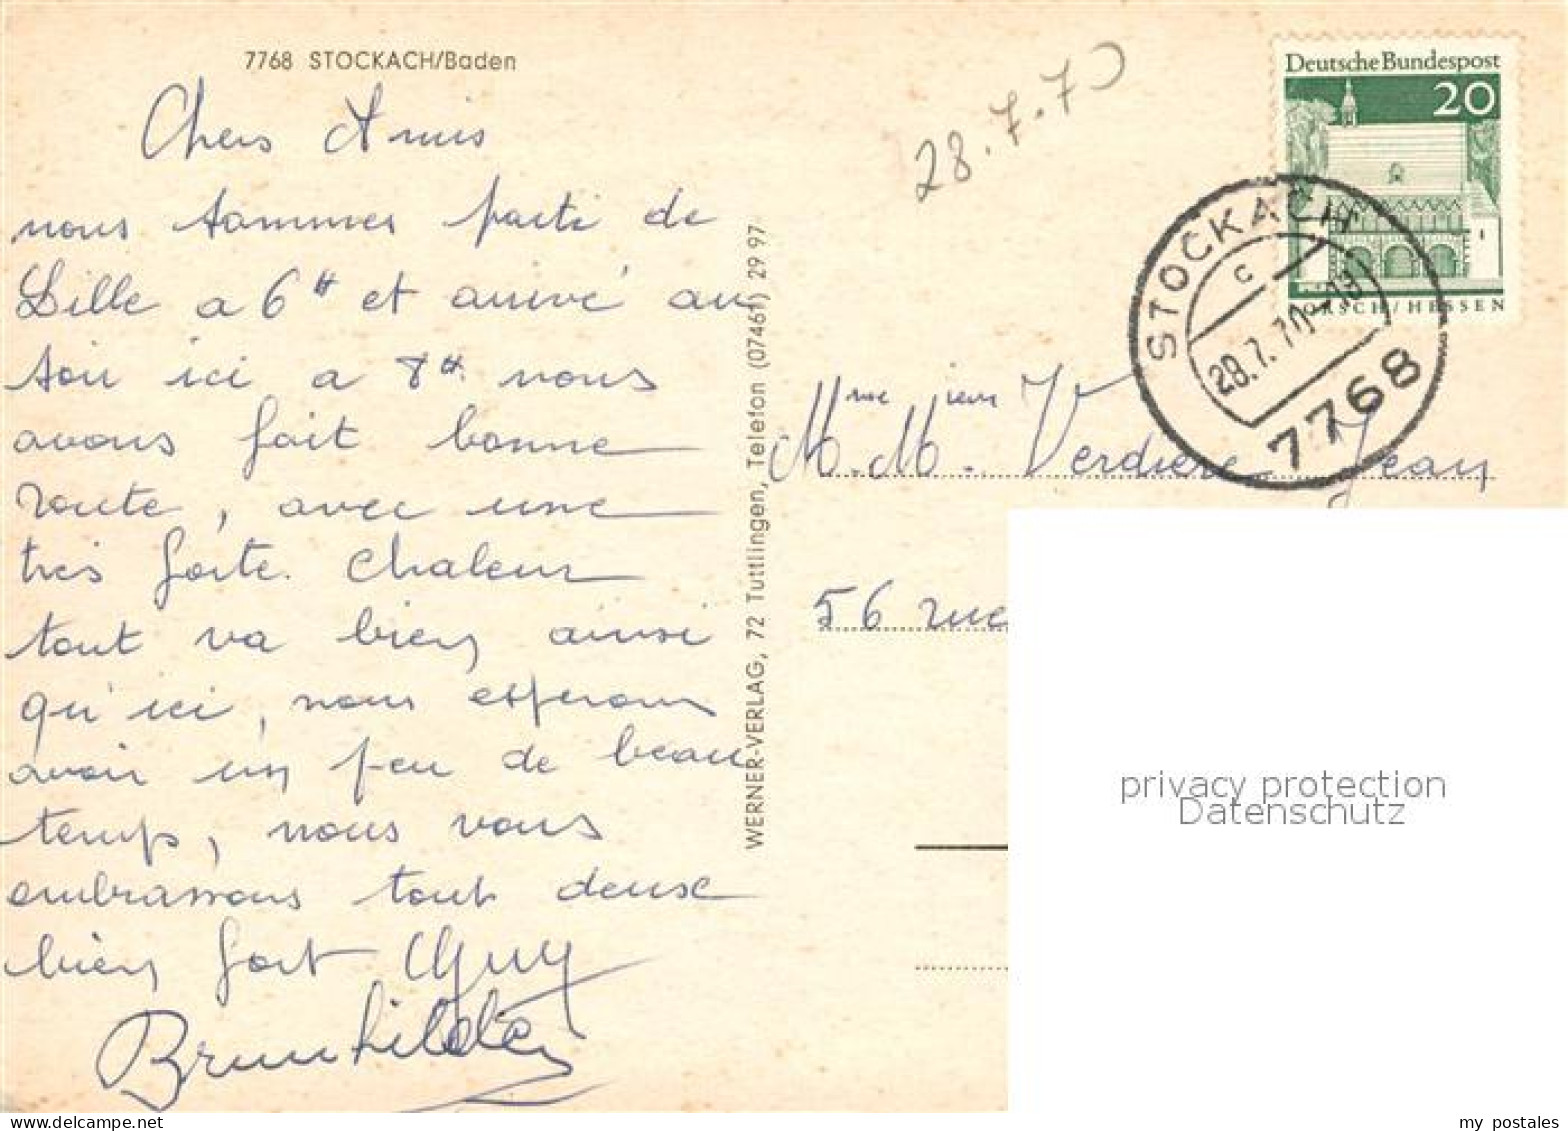 7768 STOCKACH/Baden
Chers Amis
nous sommes parti de
Lille a 6H et arrivé au
soir ici a 8H. nous
avons fait bonne
route, avec une
très forte chaleur
tout va bien ainsi
qu'ici, nous esperons
avoir un peu de beau
temps, nous vous
embrassons tout deux
bien fort Guy
Brunhilde
WERNER-VERLAG, 72 Tuttlingen, Telefon (07461) 29 97
28.7.70
Deutsche Bundespost
20
LORSCH/HESSEN
STOCKACH
c
28.7.70-18
7768
Mme
M. M. Verdiere Jean
56 rue
privacy protection
Datenschutz
my postales